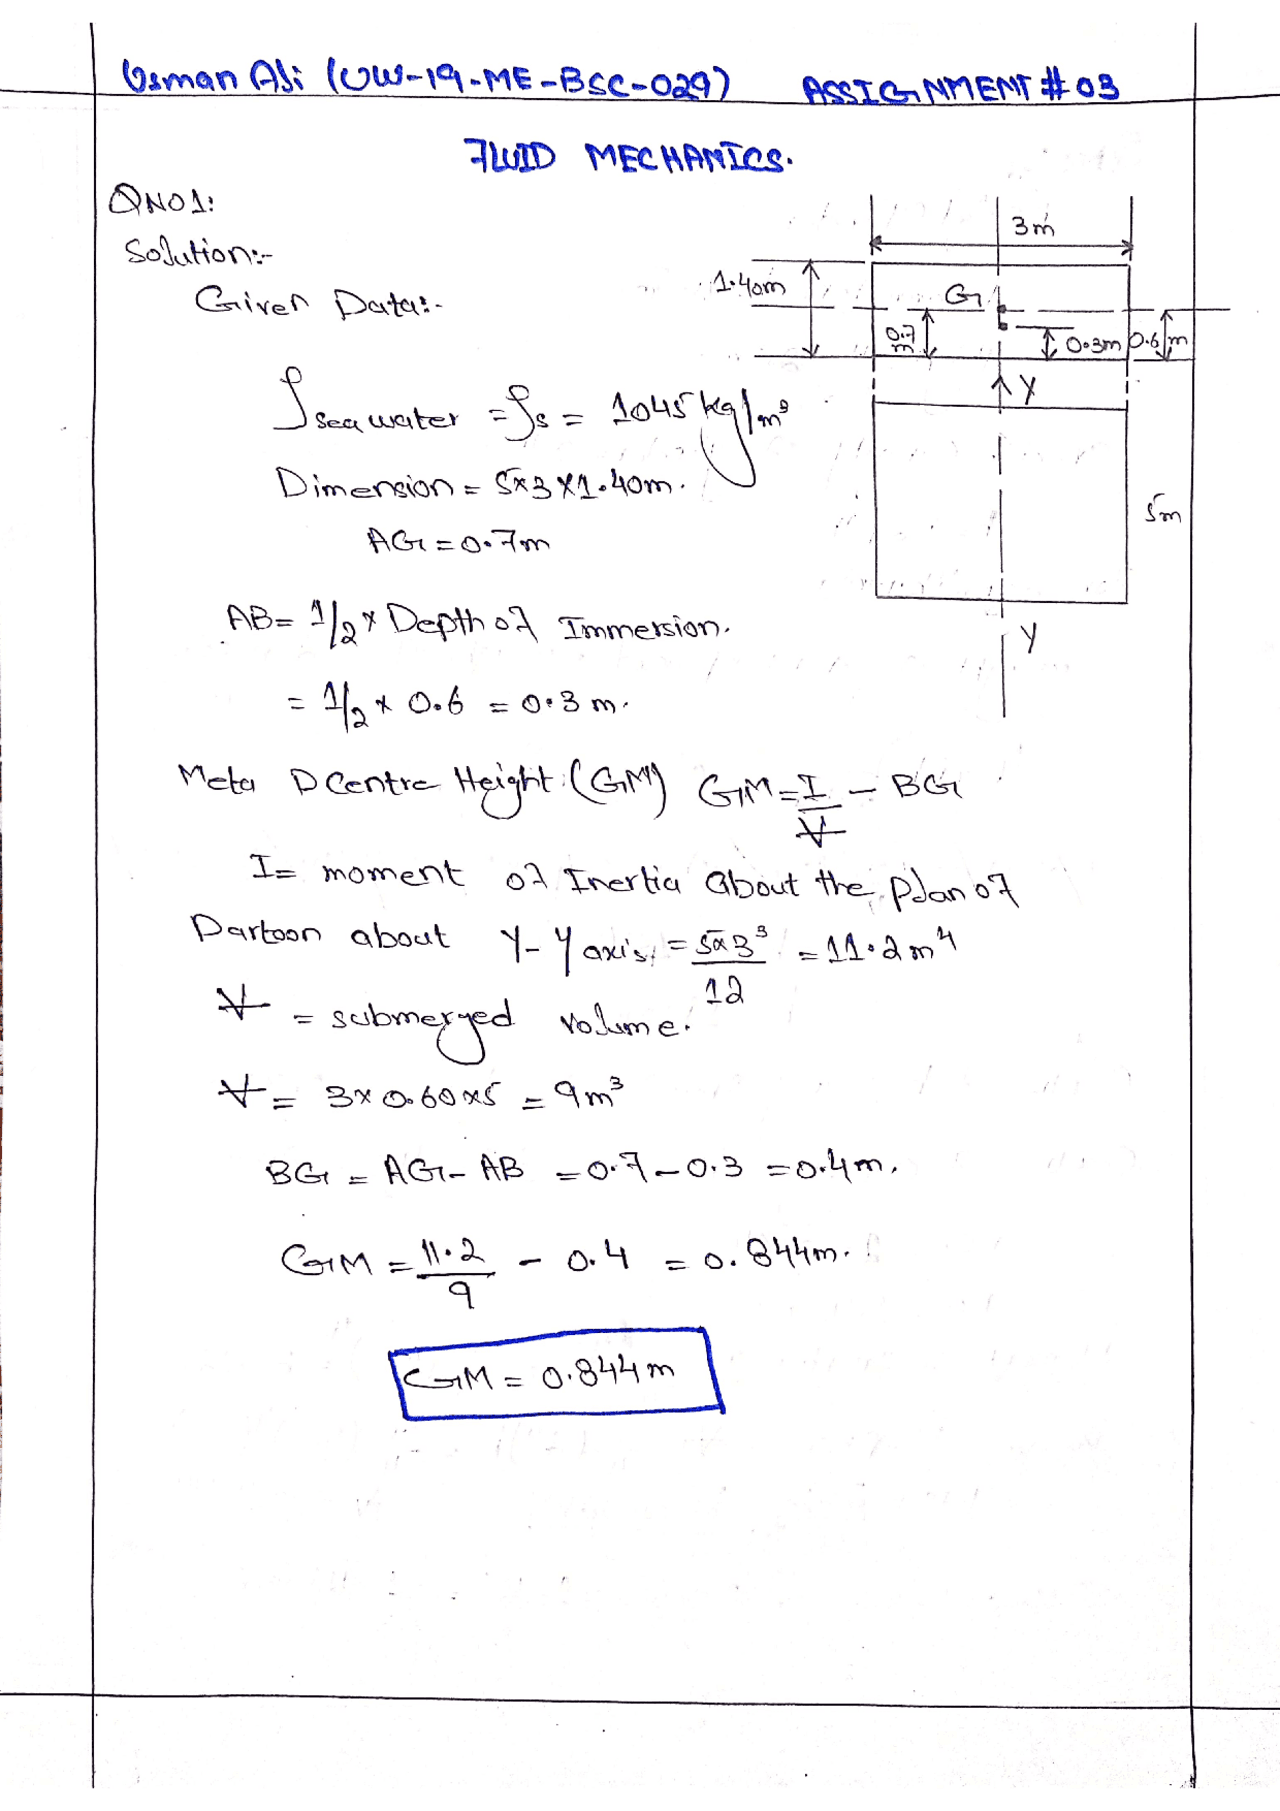 Usman Ali (UW-19-ME-BSC-029) ASSIGNMENT # 03
FLUID MECHANICS.
QNO1:
Solution:-
Given Data:-
3m
1.40m
G
0.7m
0.3m
0.6m
Y
5m
Y
ρ sea water = ρs = 1045 kg/m³
Dimension = 5x3x1.40m.
AG = 0.7m
AB = 1/2 x Depth of Immersion.
= 1/2 x 0.6 = 0.3 m.
Meta D Centre Height (GM) GM = I/V - BG
I = moment of Inertia about the plan of
Partoon about Y-Y axis, = 5x3³/12 = 11.2 m⁴
V = submerged volume.
V = 3x0.60x5 = 9m³
BG = AG - AB = 0.7 - 0.3 = 0.4m.
GM = 11.2/9 - 0.4 = 0.844m.
GM = 0.844m